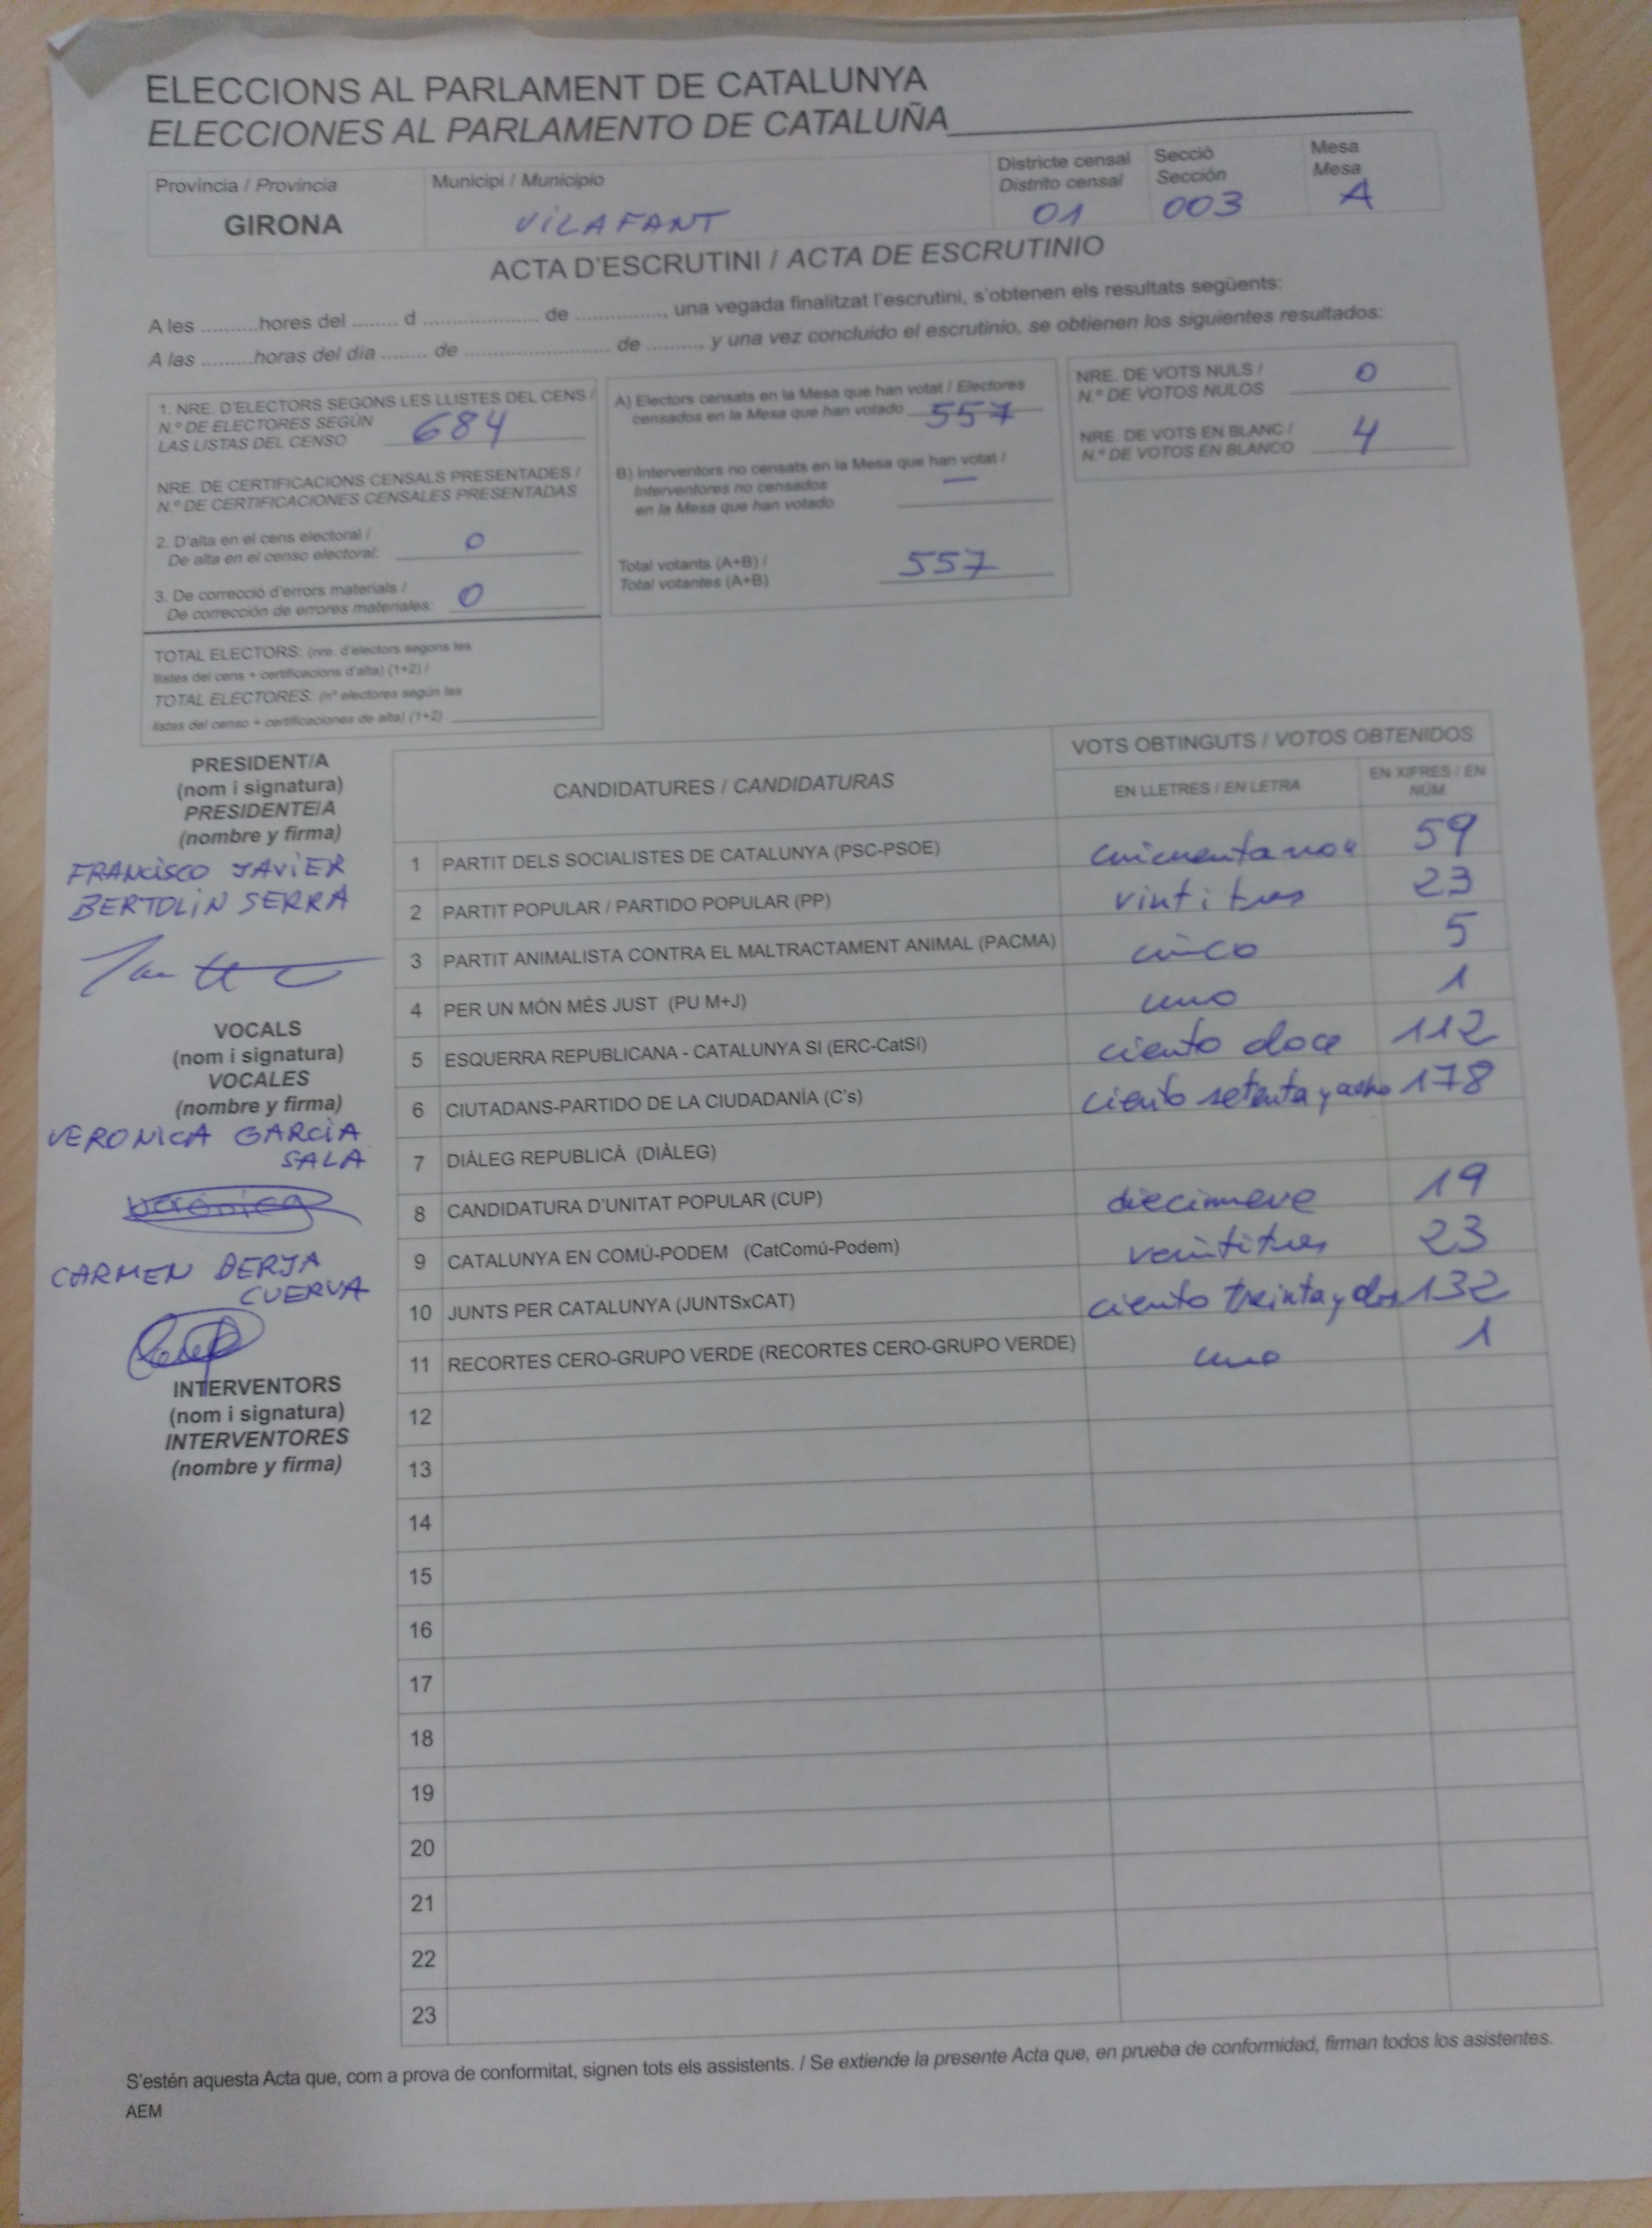 ELECCIONS AL PARLAMENT DE CATALUNYA
ELECCIONES AL PARLAMENTO DE CATALUÑA
Provincia / Provincia
GIRONA
Municipi / Municipio
VILAFANT
Districte censal
Distrito censal
01
Secció
Sección
003
Mesa
Mesa
A
ACTA D'ESCRUTINI / ACTA DE ESCRUTINIO
A les ..........hores del ........ d .................... de ..............., una vegada finalitzat l'escrutini, s'obtenen els resultats següents:
A las .........horas del día ........ de ......................... de .........., y una vez concluido el escrutinio, se obtienen los siguientes resultados:
1. NRE. D'ELECTORS SEGONS LES LLISTES DEL CENS /
N.º DE ELECTORES SEGÚN
LAS LISTAS DEL CENSO 684
NRE. DE CERTIFICACIONS CENSALS PRESENTADES /
N.º DE CERTIFICACIONES CENSALES PRESENTADAS
2. D'alta en el cens electoral /
De alta en el censo electoral: 0
3. De correcció d'errors materials /
De corrección de errores materiales: 0
TOTAL ELECTORS: (nre. d'electors segons les
llistes del cens + certificacions d'alta) (1+2) /
TOTAL ELECTORES: (nº electores según las
listas del censo + certificaciones de alta) (1+2)
A) Electors censats en la Mesa que han votat / Electores
censados en la Mesa que han votado 557
B) Interventors no censats en la Mesa que han votat /
Interventores no censados —
en la Mesa que han votado
Total votants (A+B) /
Total votantes (A+B) 557
NRE. DE VOTS NULS /
N.º DE VOTOS NULOS 0
NRE. DE VOTS EN BLANC /
N.º DE VOTOS EN BLANCO 4
PRESIDENT/A
(nom i signatura)
PRESIDENTE/A
(nombre y firma)
FRANCISCO JAVIER
BERTOLIN SERRA
VOCALS
(nom i signatura)
VOCALES
(nombre y firma)
VERONICA GARCIA
SALA
veronica
CARMEN BERJA
CUERVA
INTERVENTORS
(nom i signatura)
INTERVENTORES
(nombre y firma)
CANDIDATURES / CANDIDATURAS
VOTS OBTINGUTS / VOTOS OBTENIDOS
EN LLETRES / EN LETRA
EN XIFRES / EN
NÚM.
1 PARTIT DELS SOCIALISTES DE CATALUNYA (PSC-PSOE) 59
2 PARTIT POPULAR / PARTIDO POPULAR (PP) vintitres 23
3 PARTIT ANIMALISTA CONTRA EL MALTRACTAMENT ANIMAL (PACMA) cinco 5
4 PER UN MÓN MÉS JUST (PU M+J) uno 1
5 ESQUERRA REPUBLICANA - CATALUNYA SI (ERC-CatSí) ciento doce 112
6 CIUTADANS-PARTIDO DE LA CIUDADANÍA (C's) ciento setenta y ocho 178
7 DIÀLEG REPUBLICÀ (DIÀLEG)
8 CANDIDATURA D'UNITAT POPULAR (CUP) diecinueve 19
9 CATALUNYA EN COMÚ-PODEM (CatComú-Podem) veintitres 23
10 JUNTS PER CATALUNYA (JUNTSxCAT) ciento treinta y dos 132
11 RECORTES CERO-GRUPO VERDE (RECORTES CERO-GRUPO VERDE) uno 1
12
13
14
15
16
17
18
19
20
21
22
23
S'estén aquesta Acta que, com a prova de conformitat, signen tots els assistents. / Se extiende la presente Acta que, en prueba de conformidad, firman todos los asistentes.
AEM